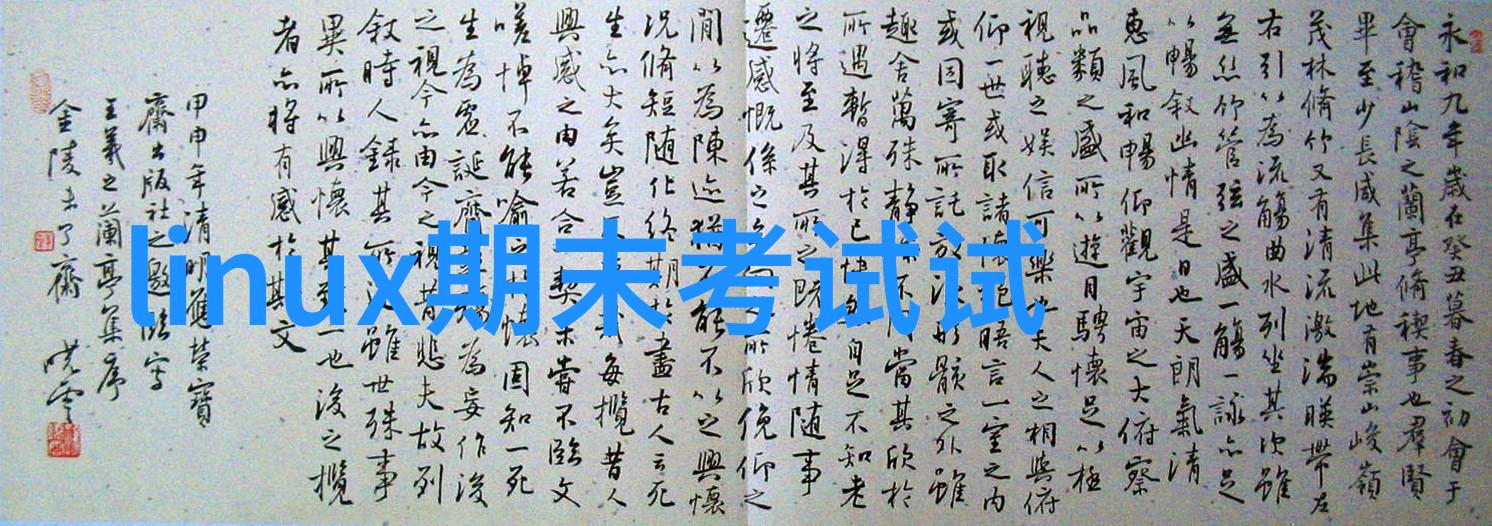 永和九年歲在癸丑暮春之初會于
會稽山陰之蘭亭脩稧事也羣賢
畢至少長咸集此地有崇山峻嶺
茂林脩竹又有清流激湍暎帶左
右引以為流觴曲水列坐其次雖
無絲竹管弦之盛一觴一詠亦足
以暢敘幽情是日也天朗氣清
惠風和暢仰觀宇宙之大俯察
品類之盛所以遊目騁懷足以極
視聽之娛信可樂也夫人之相與俯
仰一世或取諸懷抱晤言一室之内
或因寄所託放浪形骸之外雖
趣舍萬殊靜躁不同當其欣於
所遇暫得於己快然自足不知老
之將至及其所之既惓情隨事
遷感慨係之矣向之所欣俛仰之
間以為陳迹猶不能不以之興懷
況脩短隨化終期於盡古人云死
生亦大矣豈不痛哉每攬昔人
興感之由若合一契未嘗不臨文
嗟悼不能喻之於懷固知一死
生為虛誕齊彭殤為妄作後
之視今亦由今之視昔悲夫故列
敘時人錄其所述雖世殊事
異所以興懷其致一也後之攬
者亦將有感於斯文
甲申年清明應榮寶
齋出版社之邀臨寫
王羲之蘭亭集序
金陵未了齋
linux期末考试试